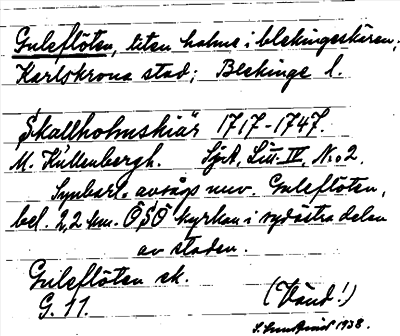 Guleflöten, liten holme i blekingeskären;
Karlskrona stad; Blekinge l.
Skallholmskiär 1717-1747.
M. Kullenbergh. SjöA, Litt. IV, No 2.
Synbarl. avsågs nuv. Guleflöten,
bel. 2,2 km. ÖSÖ kyrkan i sydöstra delen
av staden.
Guleflöten ek.
G. 11. (Vänd!)
1938.